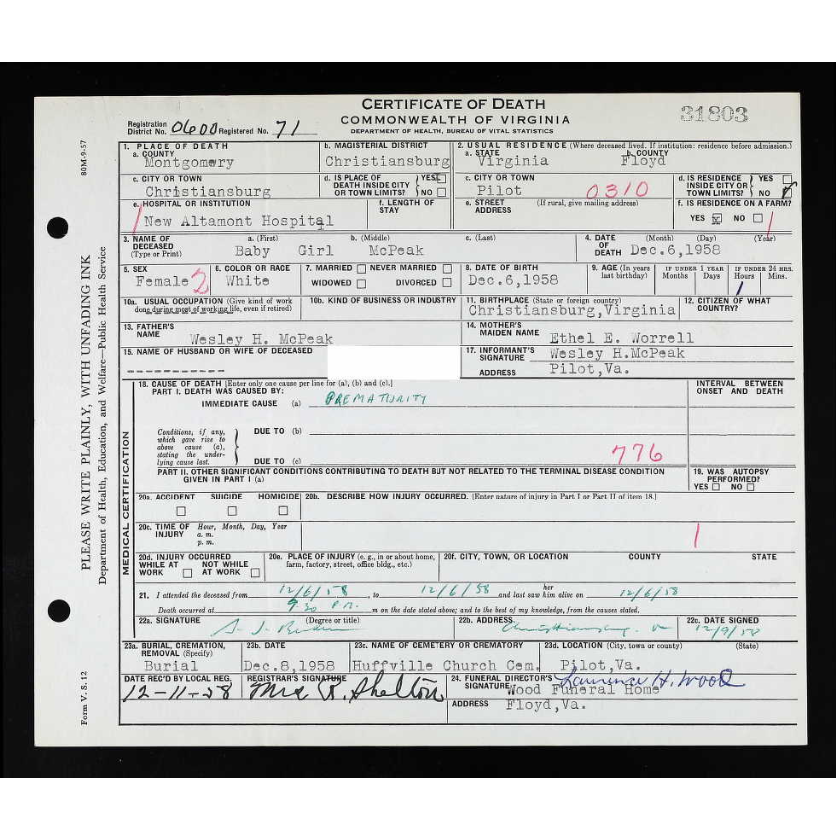 CERTIFICATE OF DEATH
COMMONWEALTH OF VIRGINIA
DEPARTMENT OF HEALTH, BUREAU OF VITAL STATISTICS
31803
Registration District No. 0600 Registered No. 71
80M-9-57
PLEASE WRITE PLAINLY, WITH UNFADING INK
Department of Health, Education, and Welfare—Public Health Service
Form V. S. 12
1. PLACE OF DEATH
a. COUNTY
Montgomery
b. MAGISTERIAL DISTRICT
Christiansburg
2. USUAL RESIDENCE (Where deceased lived. If institution: residence before admission.)
a. STATE
Virginia
b. COUNTY
Floyd
c. CITY OR TOWN
Christiansburg
d. IS PLACE OF DEATH INSIDE CITY OR TOWN LIMITS? YES NO
c. CITY OR TOWN
Pilot
0310
d. IS RESIDENCE INSIDE CITY OR TOWN LIMITS? YES NO
e. HOSPITAL OR INSTITUTION
New Altamont Hospital
f. LENGTH OF STAY
e. STREET ADDRESS (If rural, give mailing address)
f. IS RESIDENCE ON A FARM?
YES X NO
3. NAME OF DECEASED (Type or Print)
a. (First) b. (Middle) c. (Last)
Baby Girl McPeak
4. DATE OF DEATH (Month) (Day) (Year)
Dec.6,1958
5. SEX
Female 2
6. COLOR OR RACE
White
7. MARRIED NEVER MARRIED
WIDOWED DIVORCED
8. DATE OF BIRTH
Dec.6,1958
9. AGE (In years last birthday)
IF UNDER 1 YEAR Months Days
IF UNDER 24 HRS. Hours Mins.
1
10a. USUAL OCCUPATION (Give kind of work done during most of working life, even if retired)
10b. KIND OF BUSINESS OR INDUSTRY
11. BIRTHPLACE (State or foreign country)
Christiansburg,Virginia
12. CITIZEN OF WHAT COUNTRY?
13. FATHER'S NAME
Wesley H. McPeak
14. MOTHER'S MAIDEN NAME
Ethel E. Worrell
15. NAME OF HUSBAND OR WIFE OF DECEASED
------------
17. INFORMANT'S SIGNATURE
Wesley H.McPeak
ADDRESS
Pilot,Va.
MEDICAL CERTIFICATION
18. CAUSE OF DEATH [Enter only one cause per line for (a), (b) and (c).]
PART I. DEATH WAS CAUSED BY:
IMMEDIATE CAUSE (a) PREMATURITY
INTERVAL BETWEEN ONSET AND DEATH
Conditions, if any, which gave rise to above cause (a), stating the underlying cause last.
DUE TO (b)
DUE TO (c)
776
PART II. OTHER SIGNIFICANT CONDITIONS CONTRIBUTING TO DEATH BUT NOT RELATED TO THE TERMINAL DISEASE CONDITION GIVEN IN PART I (a)
19. WAS AUTOPSY PERFORMED?
YES NO
20a. ACCIDENT SUICIDE HOMICIDE
20b. DESCRIBE HOW INJURY OCCURRED. (Enter nature of injury in Part I or Part II of item 18.)
20c. TIME OF INJURY Hour, Month, Day, Year
a. m.
p. m.
20d. INJURY OCCURRED
WHILE AT WORK NOT WHILE AT WORK
20e. PLACE OF INJURY (e. g., in or about home, farm, factory, street, office bldg., etc.)
20f. CITY, TOWN, OR LOCATION COUNTY STATE
21. I attended the deceased from 12/6/58, to 12/6/58 and last saw her alive on 12/6/58
Death occurred at 9:30 P.m. m on the date stated above; and to the best of my knowledge, from the causes stated.
22a. SIGNATURE (Degree or title)
22b. ADDRESS
Christiansburg, Va
22c. DATE SIGNED
12/9/58
23a. BURIAL, CREMATION, REMOVAL (Specify)
Burial
23b. DATE
Dec.8,1958
23c. NAME OF CEMETERY OR CREMATORY
Huffville Church Cem.
23d. LOCATION (City, town or county) (State)
Pilot,Va.
DATE REC'D BY LOCAL REG.
12-11-58
REGISTRAR'S SIGNATURE
Mrs R. Shelton
24. FUNERAL DIRECTOR'S SIGNATURE
Lawrence H. Wood
Wood Funeral Home
ADDRESS
Floyd,Va.